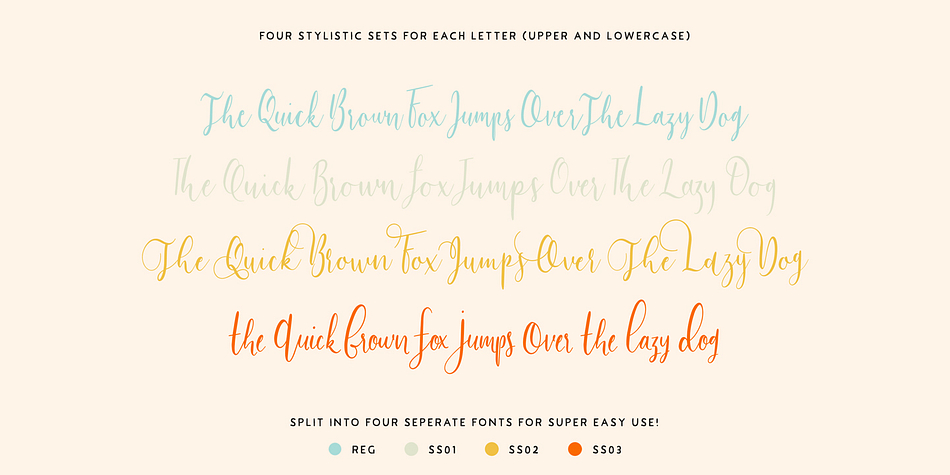 FOUR STYLISTIC SETS FOR EACH LETTER (UPPER AND LOWERCASE)
The Quick Brown Fox Jumps Over The Lazy Dog
The Quick Brown fox Jumps Over The Lazy Dog
The Quick Brown Fox Jumps Over The Lazy Dog
the Quick brown fox jumps Over the lazy dog
SPLIT INTO FOUR SEPERATE FONTS FOR SUPER EASY USE!
REG SS01 SS02 SS03